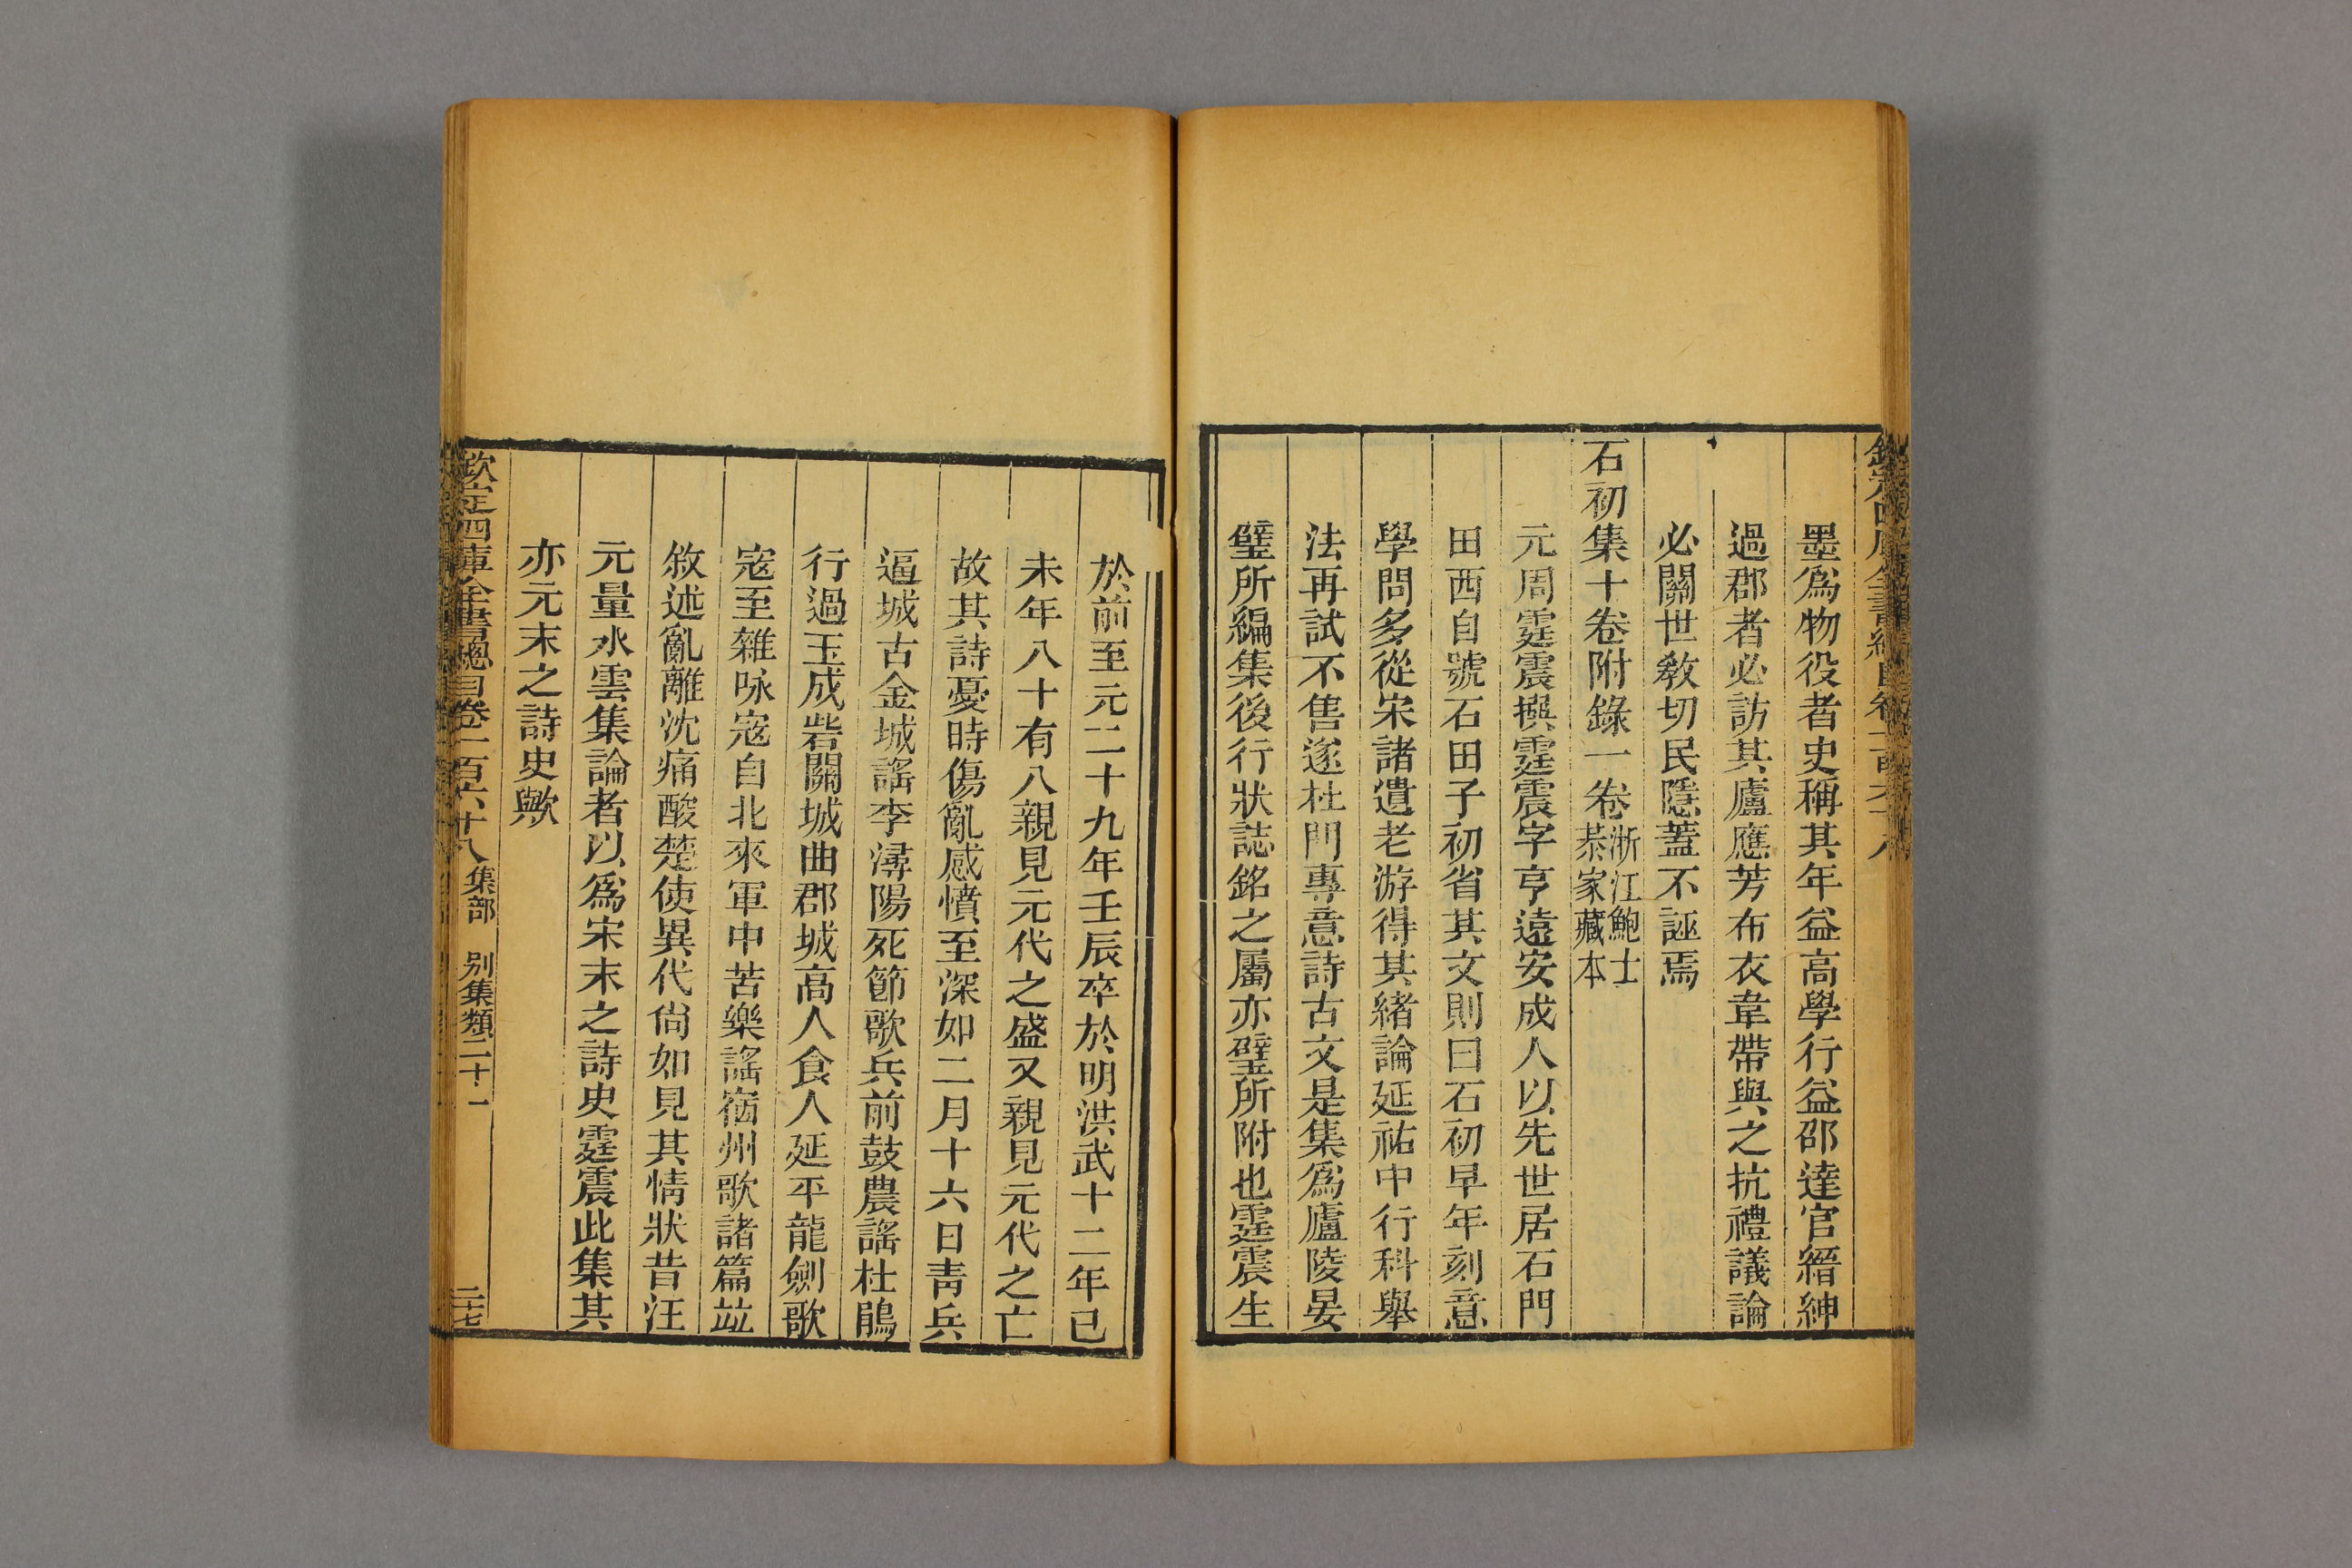 墨爲物役者史稱其年益高學行益邵達官縉紳
過郡者必訪其廬應芳布衣韋帶與之抗禮議論
必關世敎切民隱蓋不誣焉
石初集十卷附錄一卷浙江鮑士恭家藏本
元周霆震撰霆震字亨遠安成人以先世居石門
田西自號石田子初省其文則曰石初早年刻意
學問多從宋諸遺老游得其緒論延祐中行科舉
法再試不售遂杜門專意詩古文是集爲廬陵晏
璧所編集後行狀誌銘之屬亦璧所附也霆震生
於前至元二十九年壬辰卒於明洪武十二年己
未年八十有八親見元代之盛又親見元代之亡
故其詩憂時傷亂感憤至深如二月十六日靑兵
逼城古金城謠李潯陽死節歌兵前鼓農謠杜鵑
行過玉成砦關城曲郡城高人食人延平龍劍歌
寇至雜咏寇自北來軍中苦樂謠宿州歌諸篇竝
敘述亂離沈痛酸楚使異代尙如見其情狀昔汪
元量水雲集論者以爲宋末之詩史霆震此集其
亦元末之詩史歟
欽定四庫全書總目卷一百六十八 集部 別集類二十一 二十七